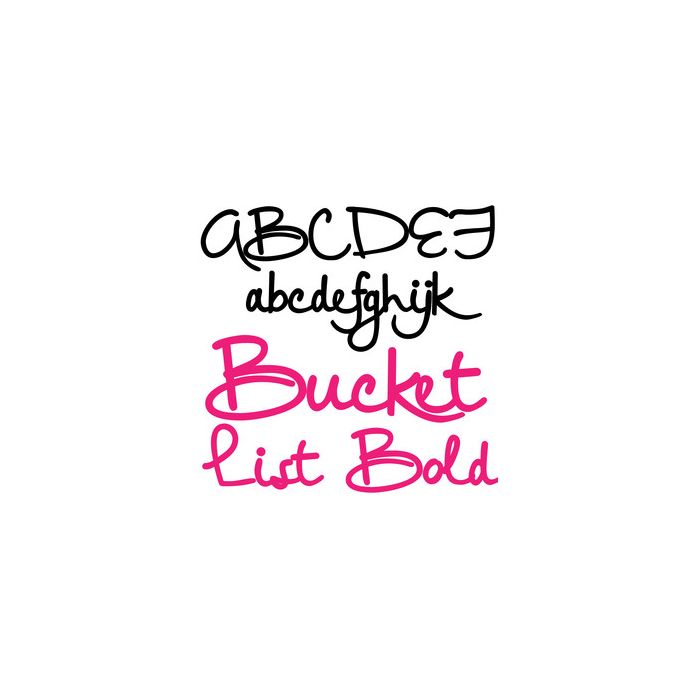 ABCDEF
abcdefghijk
Bucket
List Bold